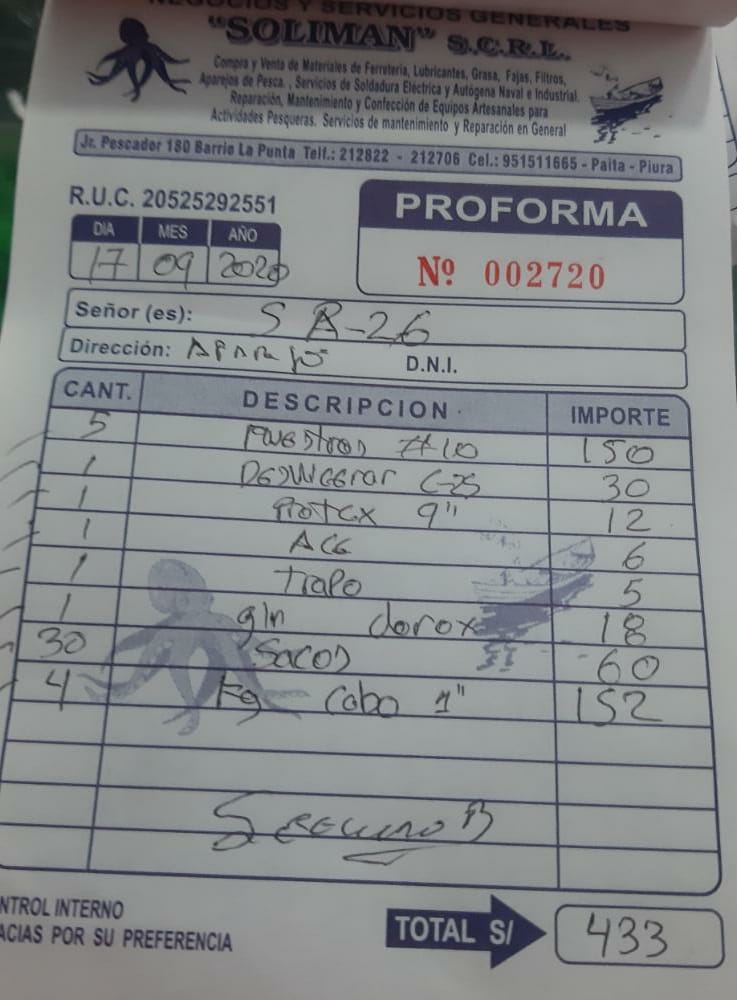 NEGOCIOS Y SERVICIOS GENERALES
"SOLIMAN" S.C.R.L.
Compra y Venta de Materiales de Ferretería, Lubricantes, Grasa, Fajas, Filtros,
Aparejos de Pesca., Servicios de Soldadura Eléctrica y Autógena Naval e Industrial.
Reparación, Mantenimiento y Confección de Equipos Artesanales para
Actividades Pesqueras. Servicios de mantenimiento y Reparación en General
Jr. Pescador 180 Barrio La Punta Telf.: 212822 - 212706 Cel.: 951511665 - Paita - Piura
R.U.C. 20525292551
PROFORMA
Nº 002720
DIA MES AÑO
17 09 2020
Señor (es):
Dirección: D.N.I.
CANT. DESCRIPCION IMPORTE
5 #10 150
1 C-25 30
1 9" 12
1 6
1 trapo 5
1 gln clorox 18
30 Sacos 60
4 kg Cabo 1" 152
NTROL INTERNO
ACIAS POR SU PREFERENCIA
TOTAL S/ 433